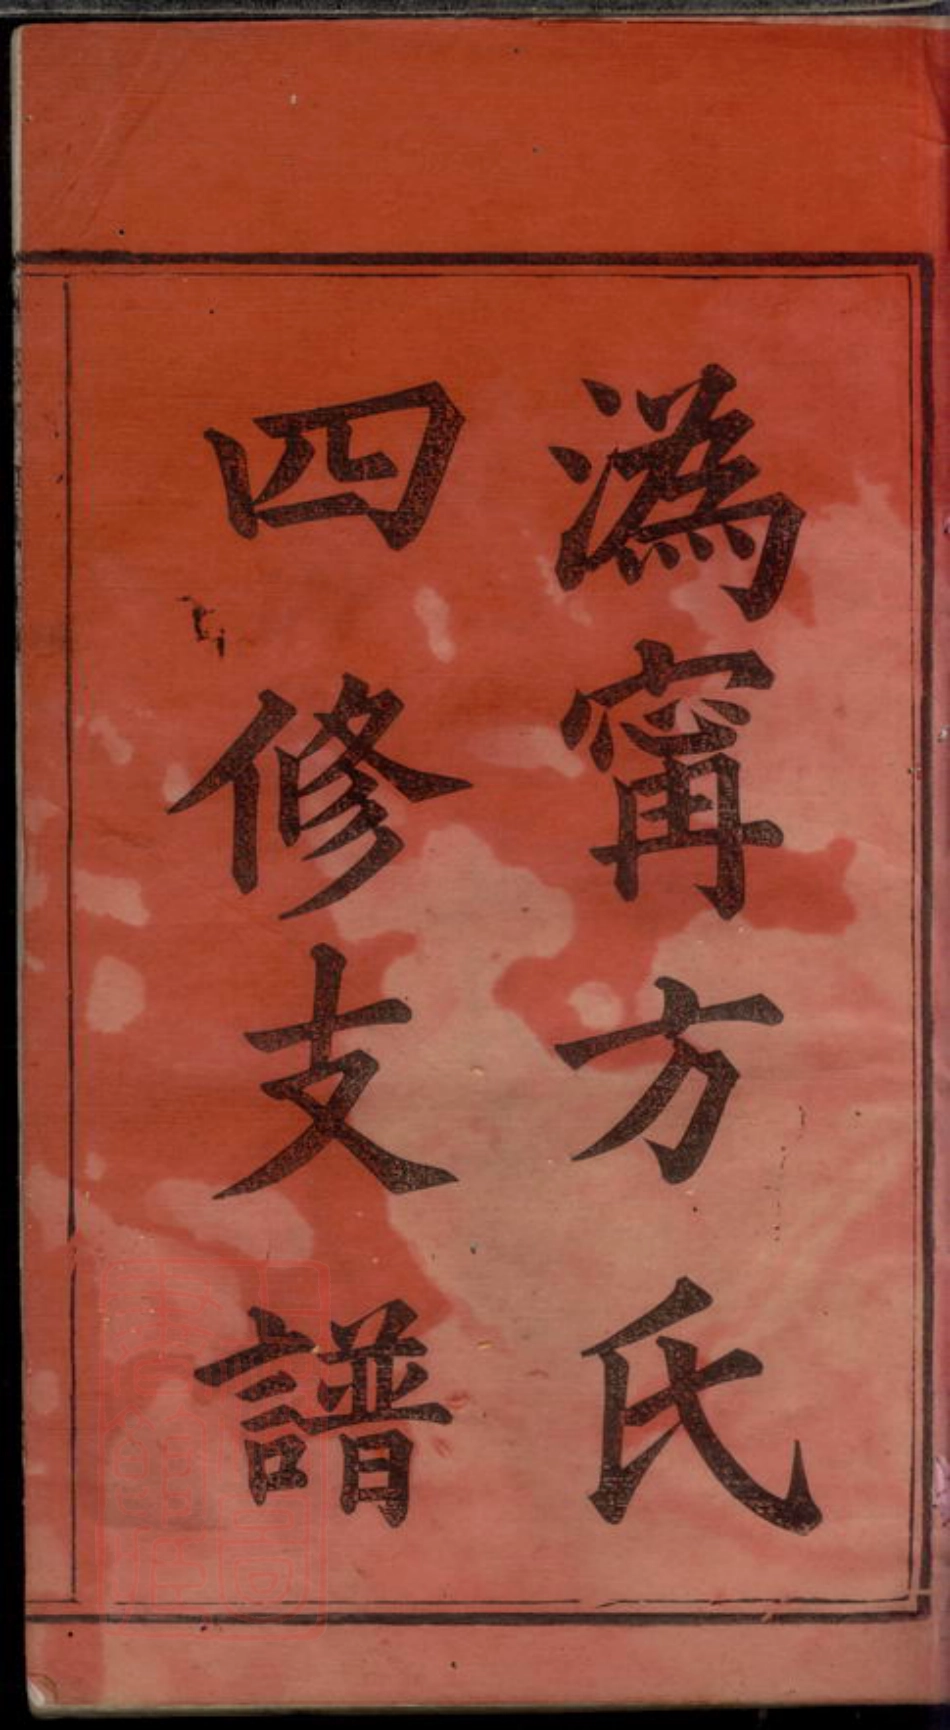 溈甯方氏
四修支譜